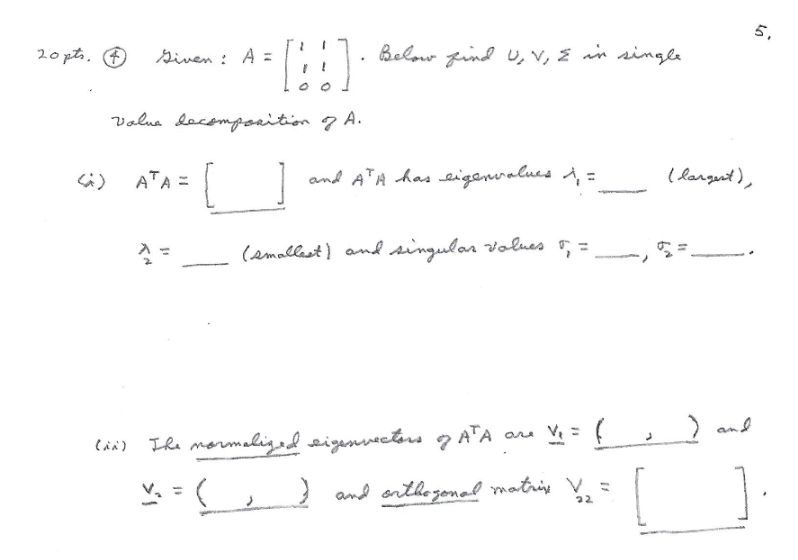 5.
20 pts. ④ Given : A = [ 1 1 ; 1 1 ; 0 0 ] . Below find U, V, Σ in single
value decomposition of A.
(i) AᵀA = [ ] and AᵀA has eigenvalues λ₁ = ____ (largest),
λ₂ = ____ (smallest) and singular values σ₁ = ____, σ₂ = ____.
(ii) The normalized eigenvectors of AᵀA are v₁ = ( , ) and
v₂ = ( , ) and orthogonal matrix V₂₂ = [ ] .